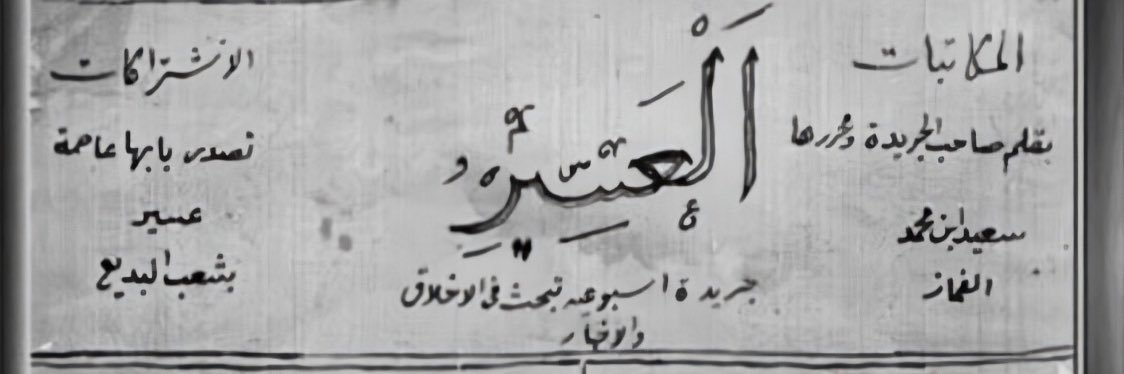 المكاتبات
بقلم صاحب الجريدة ومحررها
سعيد ابن محمد
الغماز
العسير
جريدة اسبوعيه تبحث في الاخلاق
والاخبار
الاشتراكات
تصدر بابها عاصمة
عسير
بشعب البديع